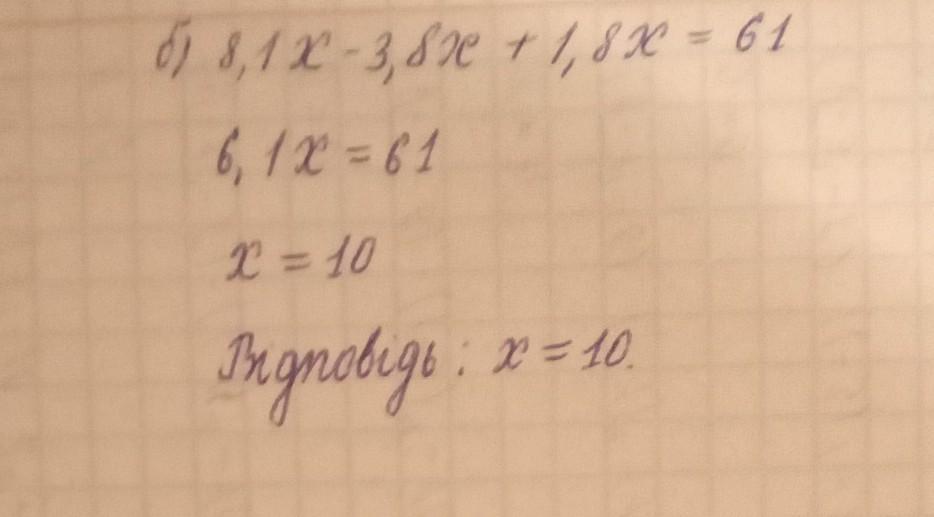 б) 8,1x - 3,8x + 1,8x = 61
6,1x = 61
x = 10
Відповідь: x = 10.